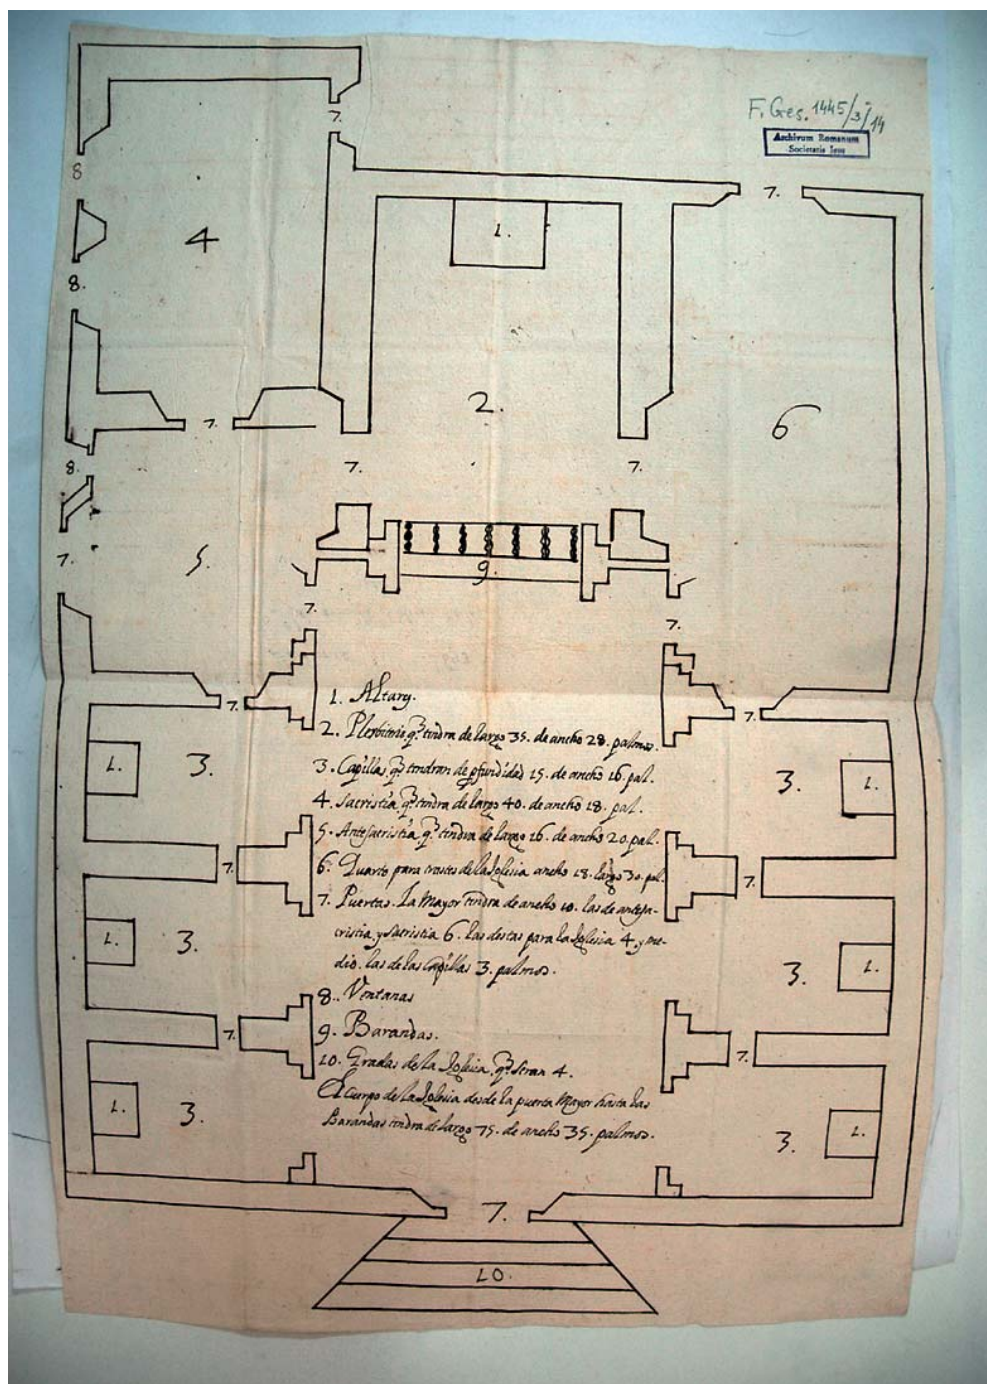 F. Ges. 1445/3/14
Archivum Romanum
Societatis Iesu
7.
8
7.
1.
4
8.
2.
6
7.
8.
7.
7.
7.
5.
9.
7.
7.
7.
1. Altary.
7.
7.
2. Plesbiterio q.^e tindra de largo 35. de ancho 28. palmos.
1. 3.
3. Capillas, q.^e tendran de pfundidad 15. de ancho 16. pal.
3. 1.
4. Sacristia, q.^e tindra de largo 40. de ancho 18. pal.
5. Antesacristia, q.^e tindra de largo 26. de ancho 20. pal.
7.
6. Quarto para trastes de la Iglesia ancho 18. largo 30. pal.
7.
7. Puertas. La Mayor tindra de ancho 10. las de antesa-
cristia, y Sacristia 6. las destas para la Iglesia 4. y me-
dio. las de las Capillas 3. palmos.
1. 3.
3. 1.
8. Ventanas
9. Barandas.
7.
7.
10. Gradas de la Iglesia, q.^e seran 4.
El cuerpo de la Iglesia desde la puerta Mayor hasta las
Barandas tindra de largo 75. de ancho 35. palmos.
1. 3.
3. 1.
7.
10.